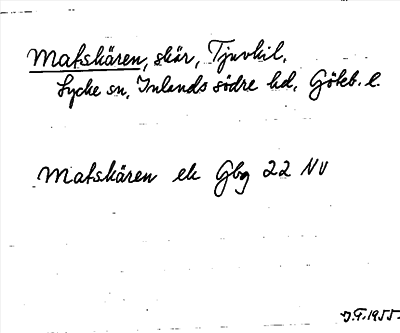 Matskären, skär, Tjuvkil,
Lycke sn, Inlands södre hd, Göteb. l.
Matskären ek Gbg 22 NV
J.G. 1955.